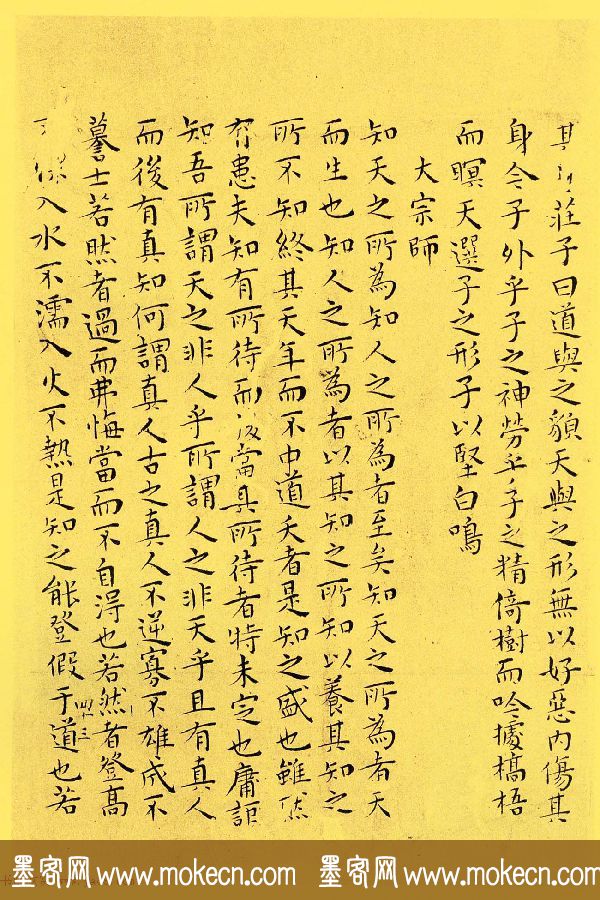 其莊子曰道與之貌天與之形無以好惡内傷其
身今子外乎子之神勞乎子之精倚樹而吟據槁梧
而瞑天選子之形子以堅白鳴
大宗師
知天之所為知人之所為者至矣知天之所為者天
而生也知人之所為者以其知之所知以養其知之
所不知終其天年而不中道夭者是知之盛也雖然
有患夫知有所待而後當其所待者特未定也庸詎
知吾所謂天之非人乎所謂人之非天乎且有真人
而後有真知何謂真人古之真人不逆寡不雄成不
謩士若然者過而弗悔當而不自得也若然者登高
慄入水不濡入火不熱是知之能登假于道也若
墨客网 www.mokecn.com 墨客网 www.mokecn.com